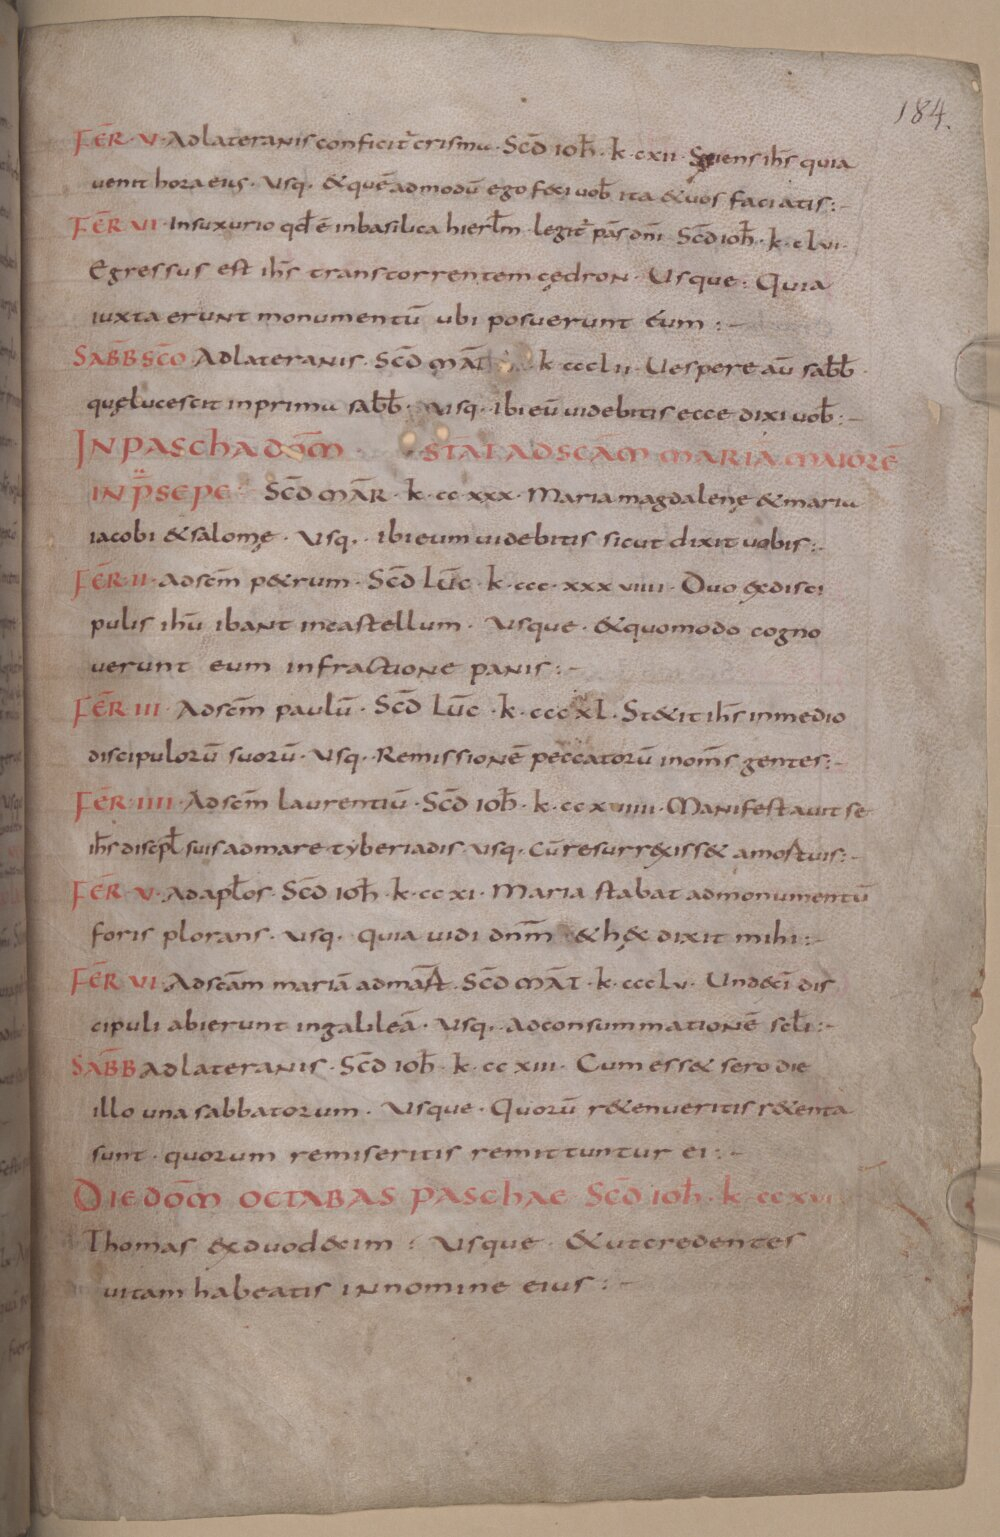 184.
FER̄ · V · Adlateranis conficit̄ crisma · SCD̄ ioh̄ · k · cxii · Sciens ih̄s quia
venit hora eius · Usq. &quē admodū ego feci vob̄ ita &vos faciatis :-
FER̄ VI · Insuxurio qd̄ ē inbasilica hierl̄m · legit̄ pas̄ dn̄i · SCD̄ ioh̄ · k · clvi ·
Egressus est ih̄s transtorrentem cędron · Usque : Quia
iuxta erunt monumentū ubi posuerunt eum : -
SAB̄B̄ SC̄O Adlateranis · SCD̄ MAT̄ k · ccclii · Uespere aū sab̄b̄ ·
quęlucescit inprima sab̄b̄ · Usq. · ibi eū videbitis ecce dixi vob̄ : -
IN PASCHA DOM̄ · STAT ADSCĀM MARIĀ MAIORĒ
IN P̄SEPE · SCD̄ MAR̄ · k · cc xxx · Maria magdalenę &maria
iacobi &salomę · Usq. · ibi eum uidebitis sicut dixit uobis :-
FER̄ II · Adscm̄ p&rum · SCD̄ LUC̄ · k · ccc · xxx viiii · Duo exdisci
pulis ih̄u ibant incastellum · Usque · &quomodo cogno
verunt eum infractione panis : -
FER̄ III · Adscm̄ paulū · SCD̄ LUC̄ · k · ccc XL · St&it ih̄s inmedio
discipulorū suorū · Usq. · Remissionē peccatorū inom̄s gentes :-
FER̄ IIII · Adscm̄ laurentiū · SCD̄ ioh̄ · k · cc x viiii · Manifestavit se
ih̄s discpl̄ suis admare tyberiadis · usq. cū resurrexiss& amortuis :-
FER̄ V · Adapl̄os · SCD̄ ioh̄ · k · cc xi · Maria stabat admonumentū
foris plorans · usq. · quia uidi dn̄m̄ &hęc dixit mihi :-
FER̄ VI · Adscām mariā admār̄t · SCD̄ MAT̄ · k · ccclv · Undeci̅ dis
cipuli abierunt ingalileā · Usq. · Adconsummationē scl̄i :-
SAB̄B Adlateranis · SCD̄ ioh̄ · k · cc xiii · Cum ess& sero die
illo una sabbatorum · Usque · Quorū r&enueritis r&enta
sunt · quorum remiseritis remittuntur ei : -
DIE DOM̄ OCTABAS PASCHAE SCD̄ ioh̄ · k ccxvi
Thomas exduodecim : Usque · &utcredentes
uitam habeatis innomine eius : -